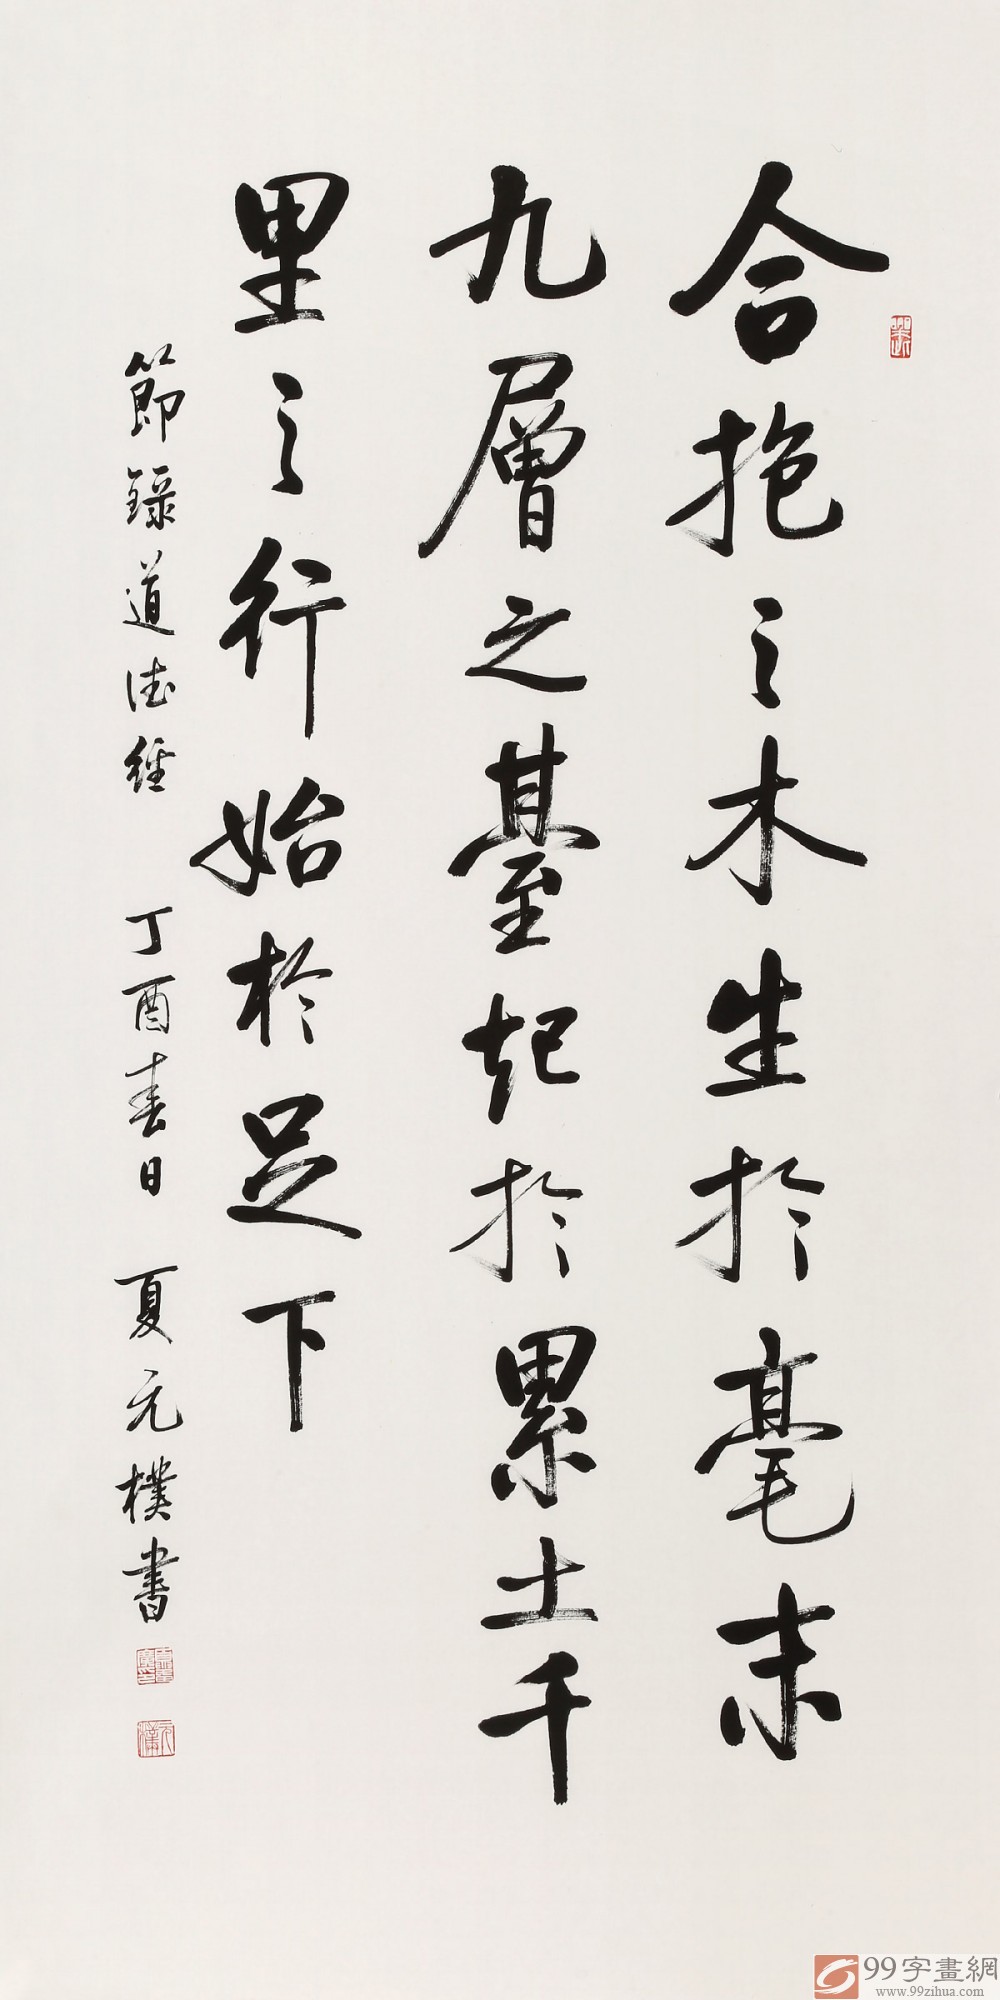 合抱之木生於毫末
九層之臺起於累土千
里之行始於足下
節錄道德經 丁酉春日 夏元樸書
99字畫網
www.99zihua.com